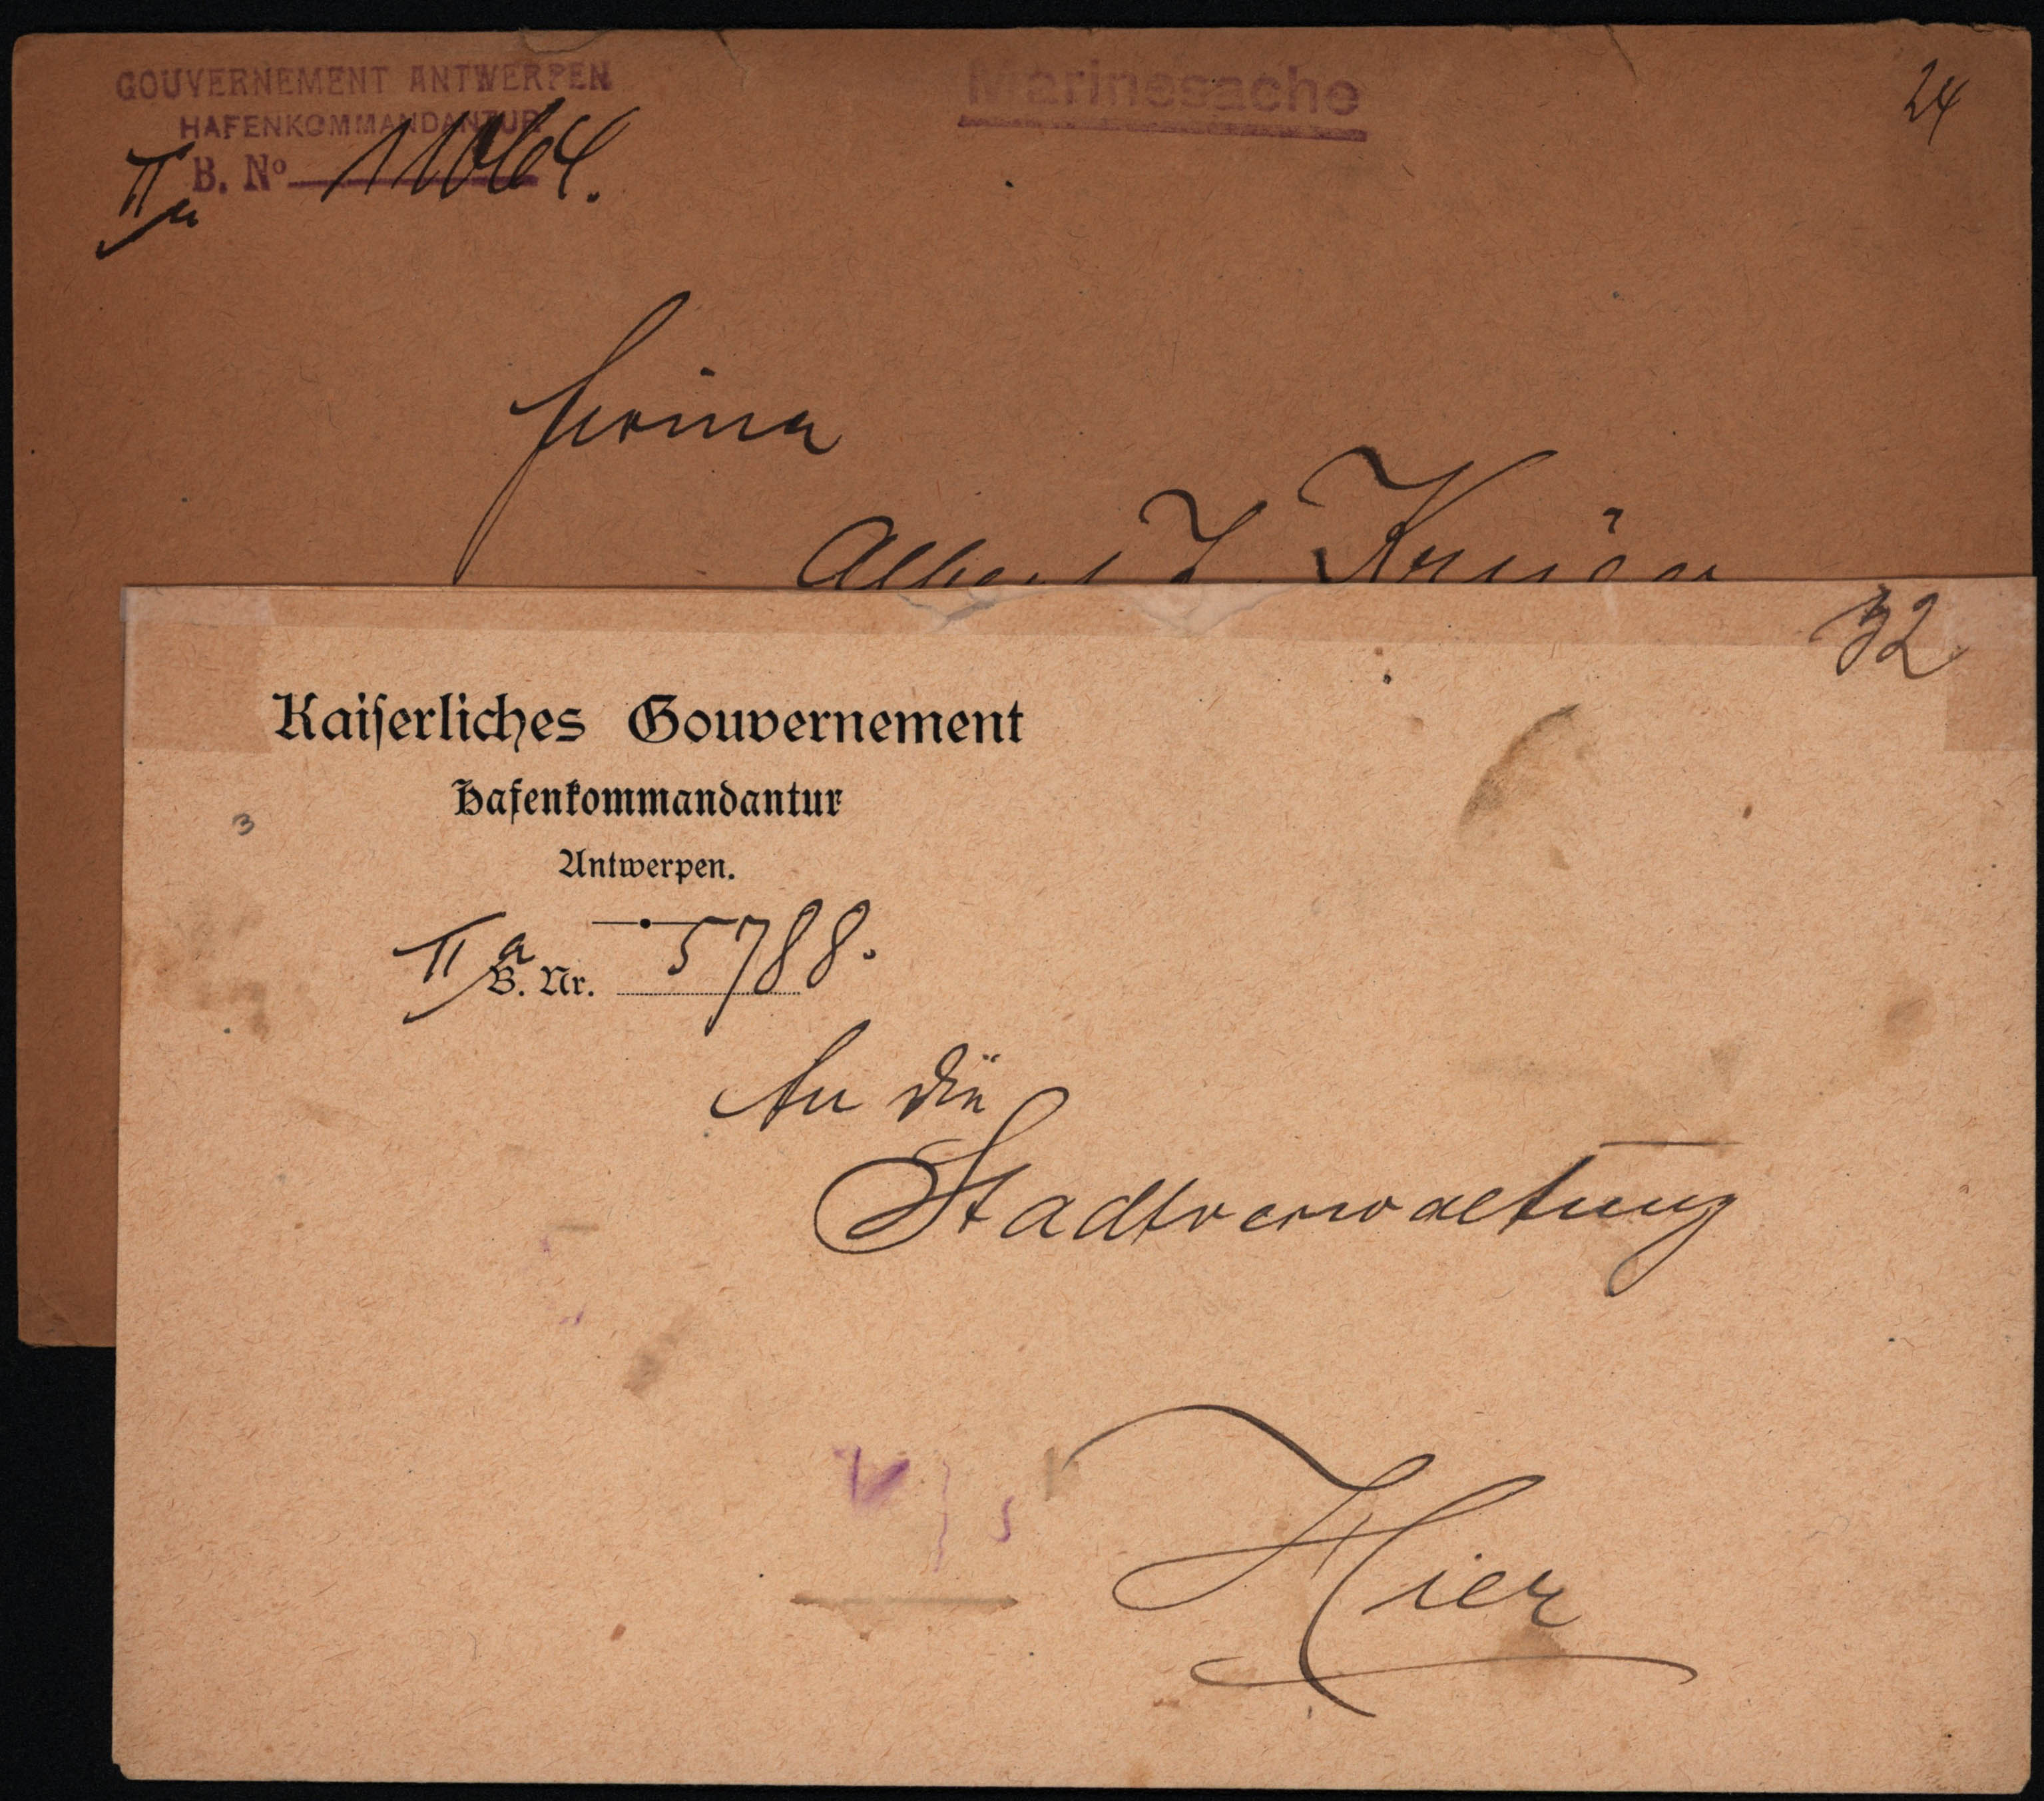 GOUVERNEMENT ANTWERPEN
Marinesache
24
HAFENKOMMANDANTUR
II a B. No
Firma
Albert
32
Kaiserliches Gouvernement
Hafenkommandantur
3
Antwerpen.
II a B. Nr. 5788.
An die
Stadtverwaltung
Hier